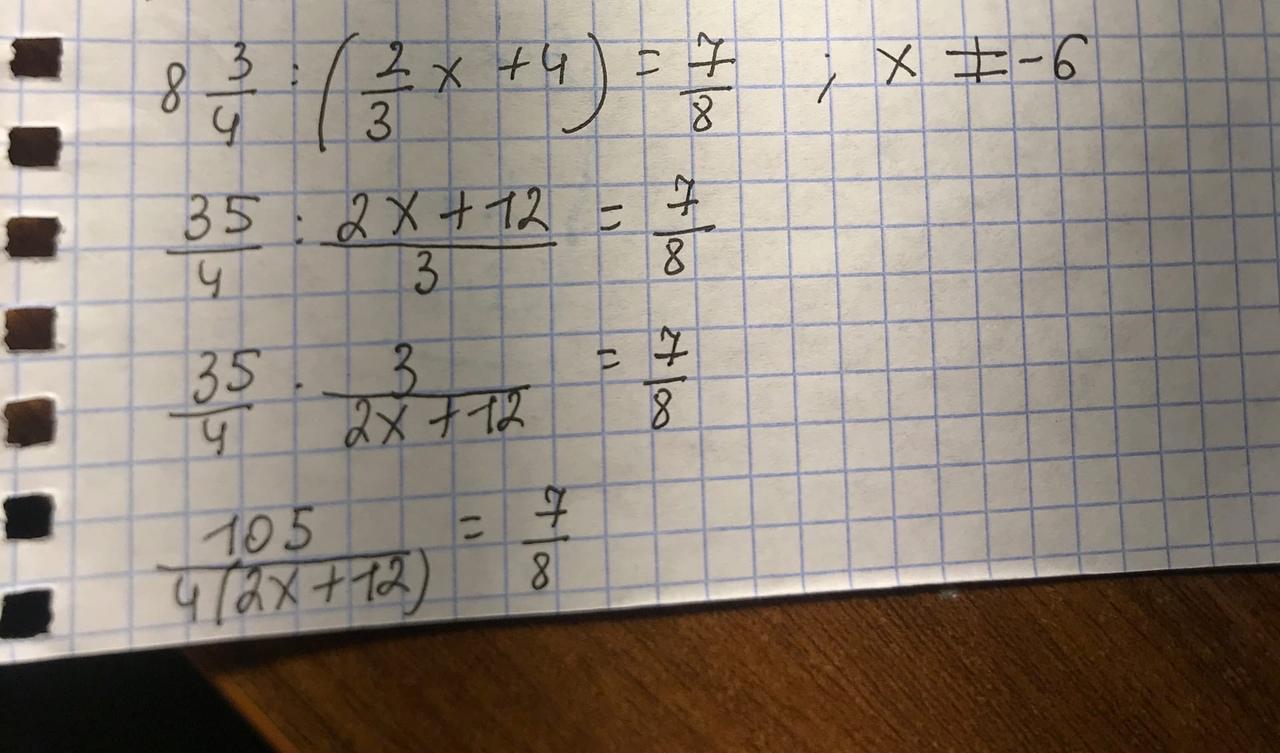 8 3/4 : (2/3 x + 4) = 7/8 ; x ≠ -6
35/4 : (2x + 12)/3 = 7/8
35/4 · 3/(2x + 12) = 7/8
105/(4(2x + 12)) = 7/8